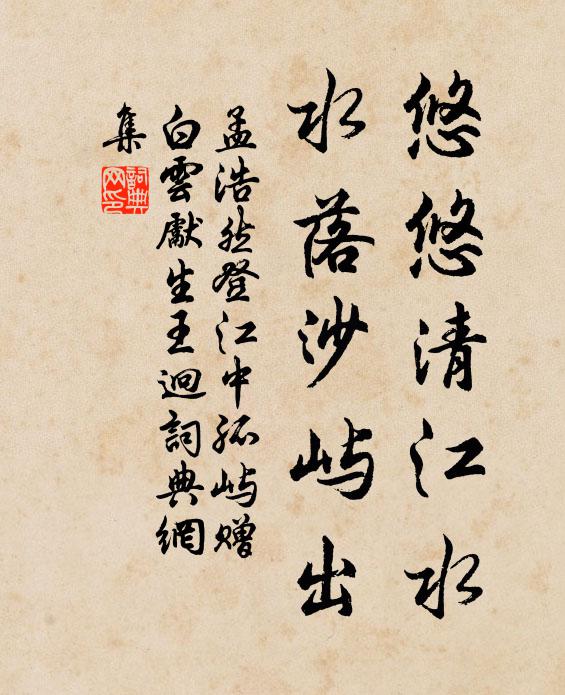 悠悠清江水
水落沙屿出
孟浩然登江中孤屿赠
白雲處生王迥詞典網
集
詞典
网印